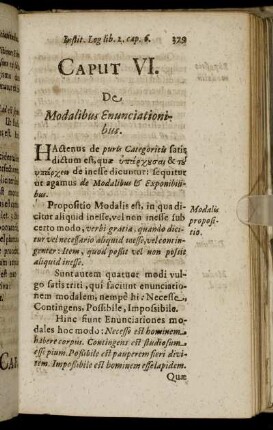 Instit. Log lib. 2. cap. 6. 329
CAPUT VI.
De
Modalibus Enunciationi-
bus.
HActenus de puris Categoricis satis
dictum est, quæ ὑπάρχουσαι & τῦ
ὑπάρχειν de inesse dicuntur: sequitur
ut agamus de Modalibus & Exponibili-
bus.
Propositio Modalis est, in qua di-
citur aliquid inesse, vel non inesse sub
certo modo, verbi gratia, quando dici-
tur vel necessario aliquid inesse, vel contin-
genter: Item, quod possit vel non possit
aliquid inesse.
Modalis
proposi-
tio.
Sunt autem quatuor modi vul-
go satis triti, qui faciunt enunciatio-
nem modalem, nempè hi: Necesse,
Contingens, Possibile, Impossibile.
Hinc fiunt Enunciationes mo-
dales hoc modo: Necesse est hominem
habere corpus. Contingens est studiosum
esse pium. Possibile est pauperem fieri divi-
tem. Impossibile est hominem esse lapidem.
Quæ